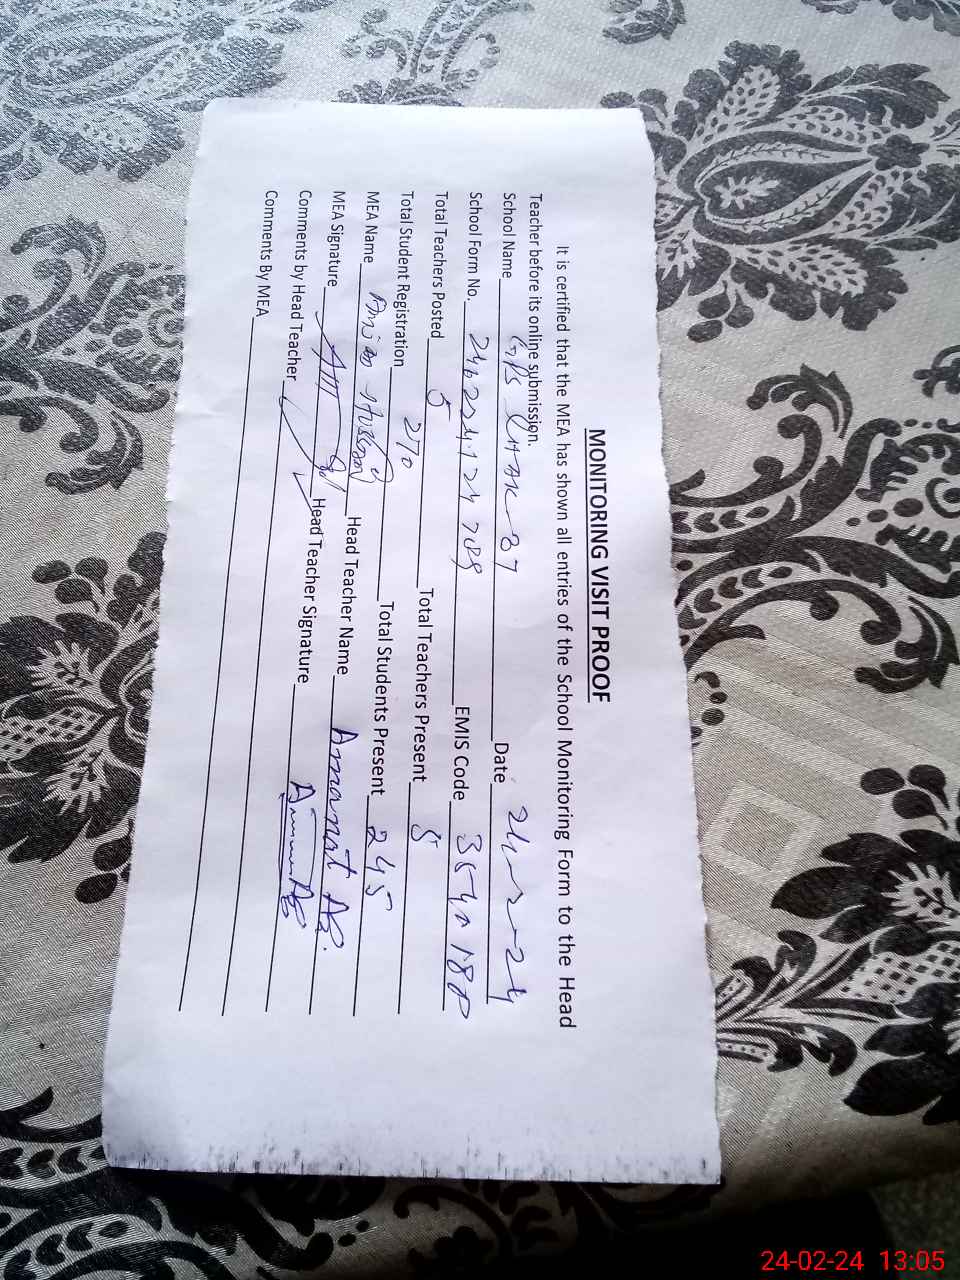 MONITORING VISIT PROOF
It is certified that the MEA has shown all entries of the School Monitoring Form to the Head
Teacher before its online submission.
School Name GPS Date 24-2-24
School Form No. EMIS Code
Total Teachers Posted 5 Total Teachers Present 5
Total Student Registration 270 Total Students Present 245
MEA Name Head Teacher Name Amanat Ali
MEA Signature Head Teacher Signature
Comments by Head Teacher
Comments By MEA
24-02-24 13:05